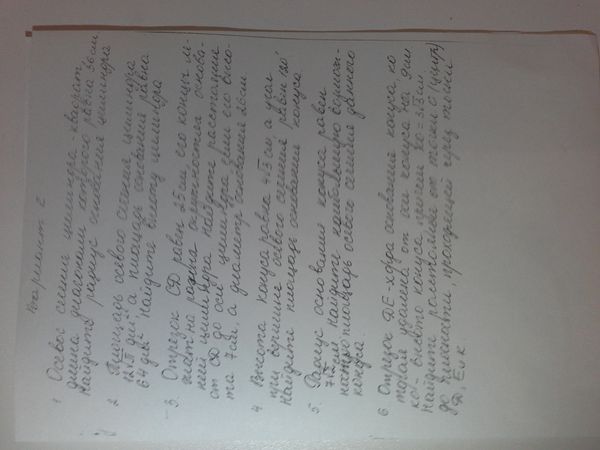 Вариант 2
1 Осевое сечение цилиндра - квадрат,
длина диагонали которого равна 36 см
Найдите радиус основания цилиндра
2 Площадь осевого сечения цилиндра
12√π дм² а площадь основания равна
64 дм² Найдите высоту цилиндра
3. Отрезок CD равен 25 см, его концы ле-
жат на разных окружностях основа-
ний цилиндра Найдите расстояние
от CD до оси цилиндра если его высо-
та 7 см, а диаметр основания 26 см
4 Высота конуса равна 4√3 см, а угол
при вершине осевого сечения равен 120°
Найдите площадь основания конуса
5. Радиус основания конуса равен
7√2 см Найдите наибольшую возмож-
ную площадь осевого сечения данного
конуса.
6 Отрезок DE - хорда основания конуса ко
торая удалена от оси конуса на 9 см
KO - высота конуса причем KO = 3√3 см
Найдите расстояние от точки O (центр)
до плоскости, проходящей через точки
D, E и K